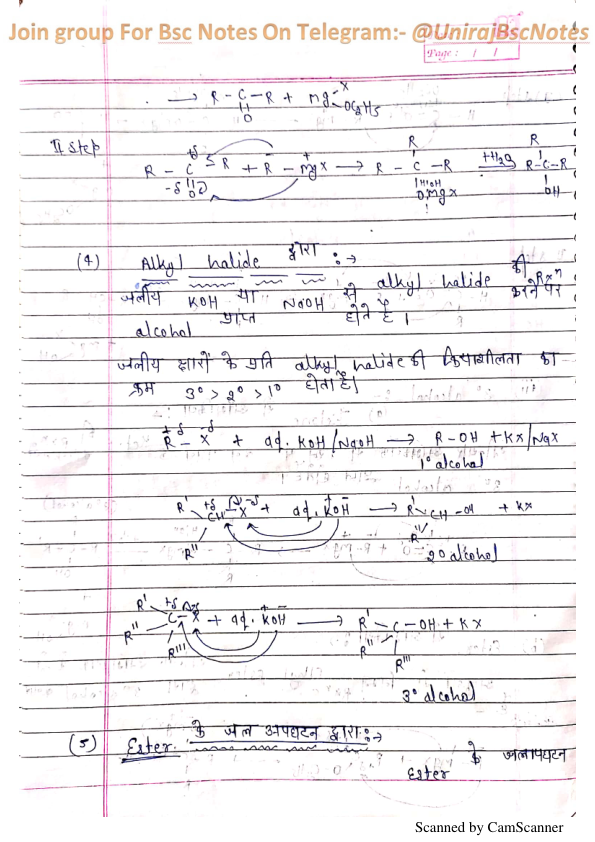 Join group For Bsc Notes On Telegram:- @UnirajBscNotes
Page: / /
→ R - C - R + Mg - X
|| OC2H5
O
II Step
R R
R - C - R + R - Mgx → R - C - R +H2O → R - C - R
-δ O OMgx OH
(4) Alkyl halide द्वारा :→
जलीय KOH या NaOH से alkyl halide की Rxn करने पर
alcohol प्राप्त होते है।
जलीय क्षारों के प्रति alkyl halide की क्रियाशीलता का
क्रम 3° > 2° > 1° होता है।
+δ -δ
R - X + aq. KOH/NaOH → R-OH + KX/NaX
1° alcohol
R' +δ -δ R'
CH - X + aq. KOH → CH - OH + KX
R'' R''
2° alcohol
R' +δ -δ R'
R'' C - X + aq. KOH → R'' C - OH + KX
R''' R'''
3° alcohol
(5) Ester के जल अपघटन द्वारा:→
Ester के जलापघटन
Scanned by CamScanner